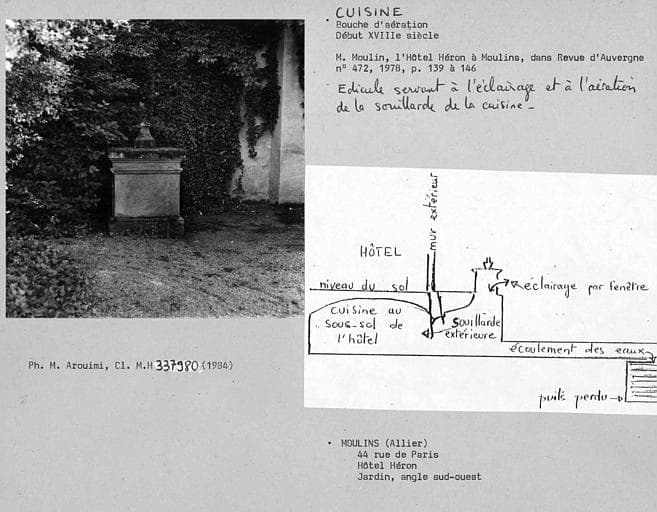 CUISINE
Bouche d'aération
Début XVIIIe siècle
M. Moulin, l'Hôtel Héron à Moulins, dans Revue d'Auvergne
n° 472, 1978, p. 139 à 146
Edicule servant à l'éclairage et à l'aération
de la souillarde de la cuisine -
mur extérieur
HÔTEL
niveau du sol
éclairage par fenêtre
cuisine au
sous-sol de
l'hôtel
souillarde
extérieure
écoulement des eaux
puits perdu
Ph. M. Arouimi, Cl. M.H 337980 (1984)
MOULINS (Allier)
44 rue de Paris
Hôtel Héron
Jardin, angle sud-ouest